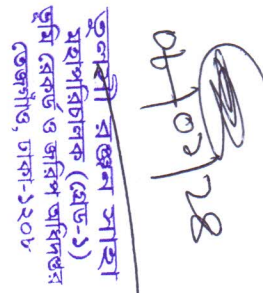 তুলসী রঞ্জন সাহা
মহাপরিচালক (গ্রেড-১)
ভূমি রেকর্ড ও জরিপ অধিদপ্তর
তেজগাঁও, ঢাকা-১২০৮